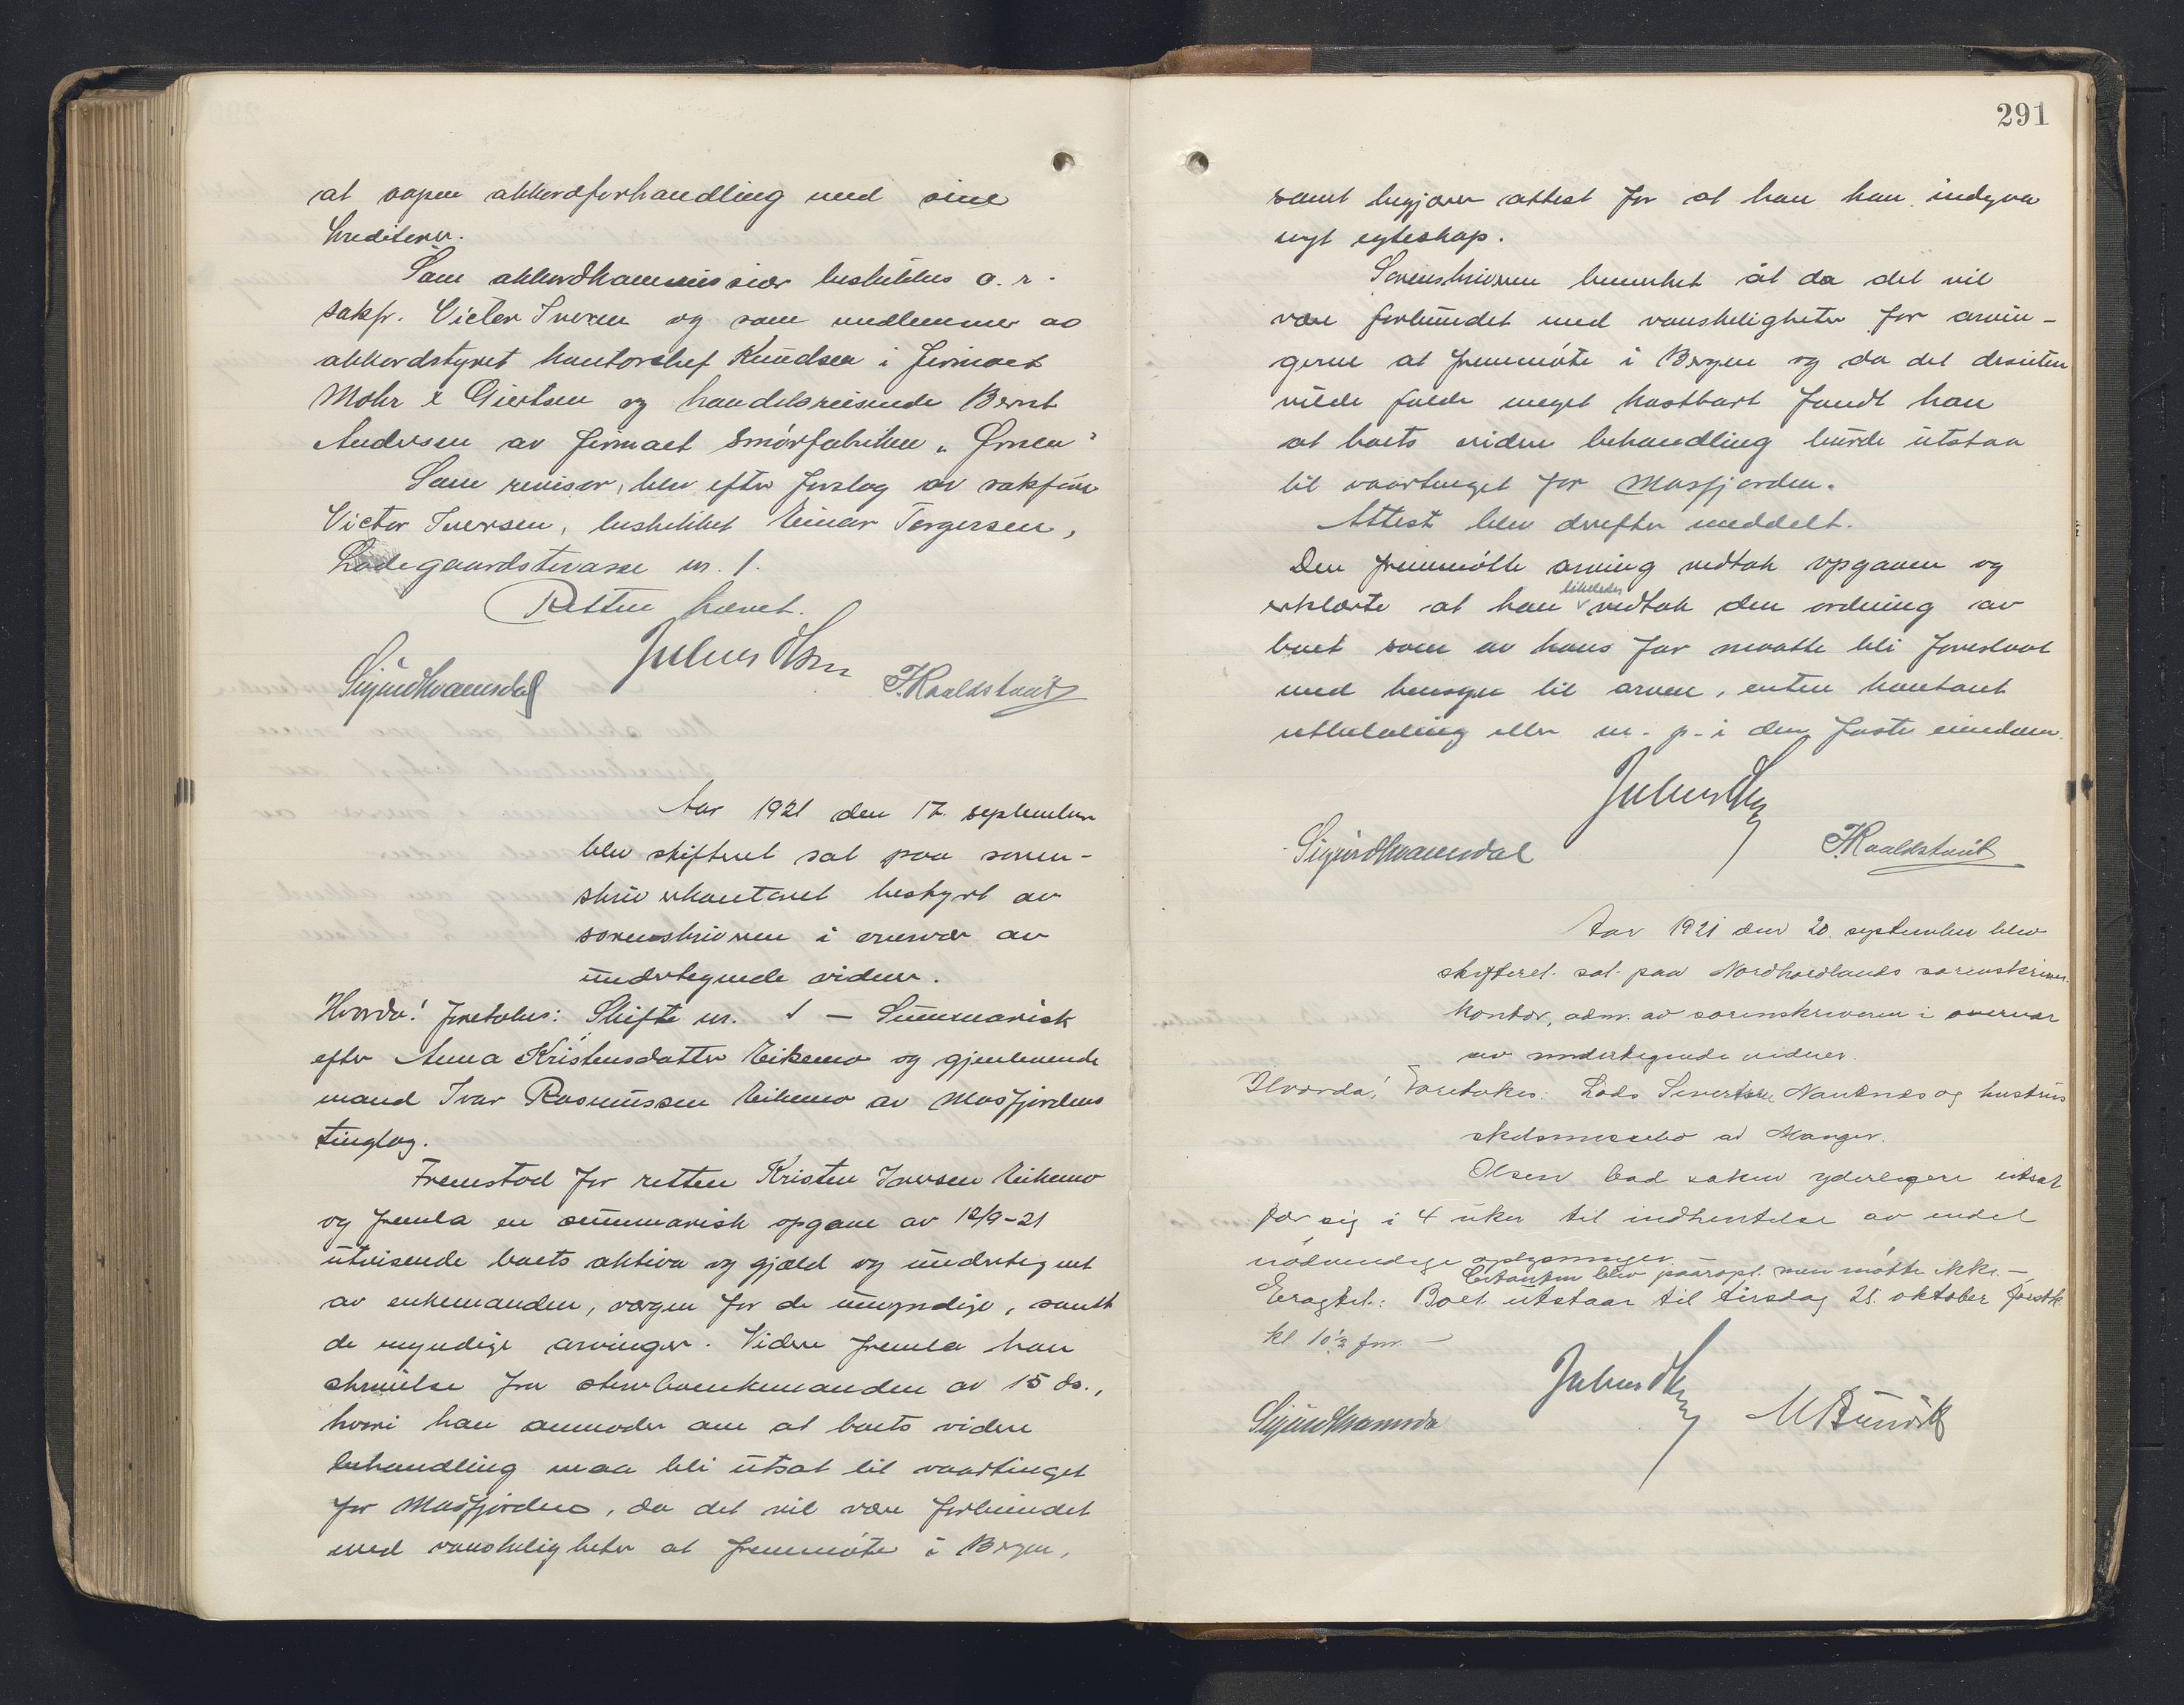 at aapne akkordforhandling med sine
kreditorer.
Som akkordkommissær beskikkes o. r.
sakf. Victor Iversen og som medlemmer av
akkordstyret kontorchef Knudsen i firmaet
Mohr & Giertsen og handelsreisende Bernt
Andersen av firmaet Smørfabriken „Ørnen"
Som revisor, blev efter forslag av sakfør
Victor Iversen, beskikket Einar Torgersen,
Ladegaardsterasse nr. 1.
Retten hævet.
Julius Olsen
Sigurd Kvamsdal
T. Kvalstand
Aar 1921 den 17. september
blev skifteret sat paa soren-
skriverkontoret bestyrt av
sorenskriveren i overvær av
undertegnede vidner.
Hvorda! foretokes: Skifte nr. 1 — Summarisk
efter Anna Kristensdatter Eikemo og gjenlevende
mand Ivar Rasmussen Eikemo av Masfjordens
tinglag.
Fremstod for retten Kristen Iversen Eikemo
og fremla en summarisk opgave av 12/9-21
utvisende boets aktiva og gjæld og undertegnet
av enkemanden, vergen for de umyndige, samt
de myndige arvinger. Videre fremla han
skrivelse fra sterboenkemanden av 15 ds.,
hvori han anmoder om at boets videre
behandling maa bli utsat til vaartinget
for Masfjorden, da det vil være forbundet
med vanskeligheter at fremmøte i Bergen,
291
samt begjærer attest for at han kan indgaa
nyt egteskap.
Sorenskriveren bemerket at da det vil
være forbundet med vanskeligheter for arvin-
gerne at fremmøte i Bergen og da det desuten
vilde falde meget kostbart fandt han
at boets videre behandling burde utstaa
til vaartinget for Masfjorden.
Attest blev derefter meddelt.
Den fremmøtte arving vedtok opgaven og
likeledes
erklærte at han vedtok den ordning av
boet som av hans far maatte bli foreslaat
med hensyn til arven, enten kontant
utbetaling eller in. p. i den faste eiendom.
Julius Olsen
Sigurd Kvamsdal
T. Kvalstand
Aar 1921 den 20. september blev
skifteret sat paa Nordhordlands sorenskriver-
kontor, adm. av sorenskriveren i overvær
av undertegnede vidner.
Hvorda! Foretokes: Lads Sivertsen Nautnes og hustrus
skilsmissebo av Manger.
Olsen bad saken yderligere utsat
for sig i 4 uker til indhentelse av endel
nødvendige oplysninger. —
Citanten blev paaropt men møtte ikke. —
Eragtet: Boet utstaar til tirsdag 25. oktober førstk.
kl 10½ fm. —
Julius Olsen
Sigurd Kvamsda